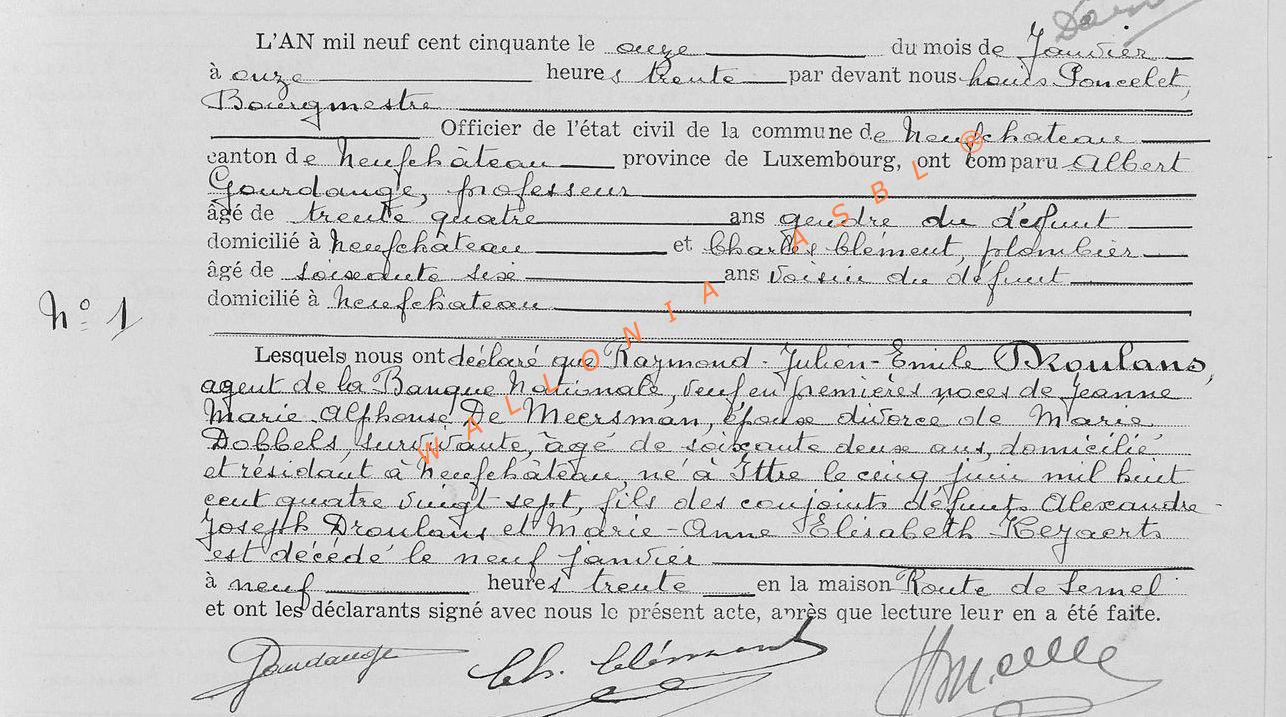 L'AN mil neuf cent cinquante le onze du mois de Janvier
à onze heures trente par devant nous Louis Poncelet,
Bourgmestre
Officier de l'état civil de la commune de Neufchateau
canton de Neufchâteau province de Luxembourg, ont comparu Albert
Gourdange, professeur
âgé de trente quatre ans gendre du défunt
domicilié à Neufchâteau et Charles Clément, plombier
âgé de soixante six ans voisin du défunt
domicilié à Neufchateau
N° 1
Lesquels nous ont déclaré que Raymond-Julien-Emile Droulans,
agent de la Banque Nationale, veuf en premières noces de Jeanne
Marie Alphonse De Meersman, époux divorcé de Marie
Dobbels, survivante, âgé de soixante deux ans, domicilié
et résidant à Neufchâteau, né à Ittre le cinq juin mil huit
cent quatre vingt sept, fils des conjoints défunts Alexandre-
Joseph Droulans et Marie-Anne Elisabeth Heyaerts
est décédé le neuf janvier
à neuf heures trente en la maison Route de Semel
et ont les déclarants signé avec nous le présent acte, après que lecture leur en a été faite.
Gourdange Ch. Clément
WALLONIA ASBL ®